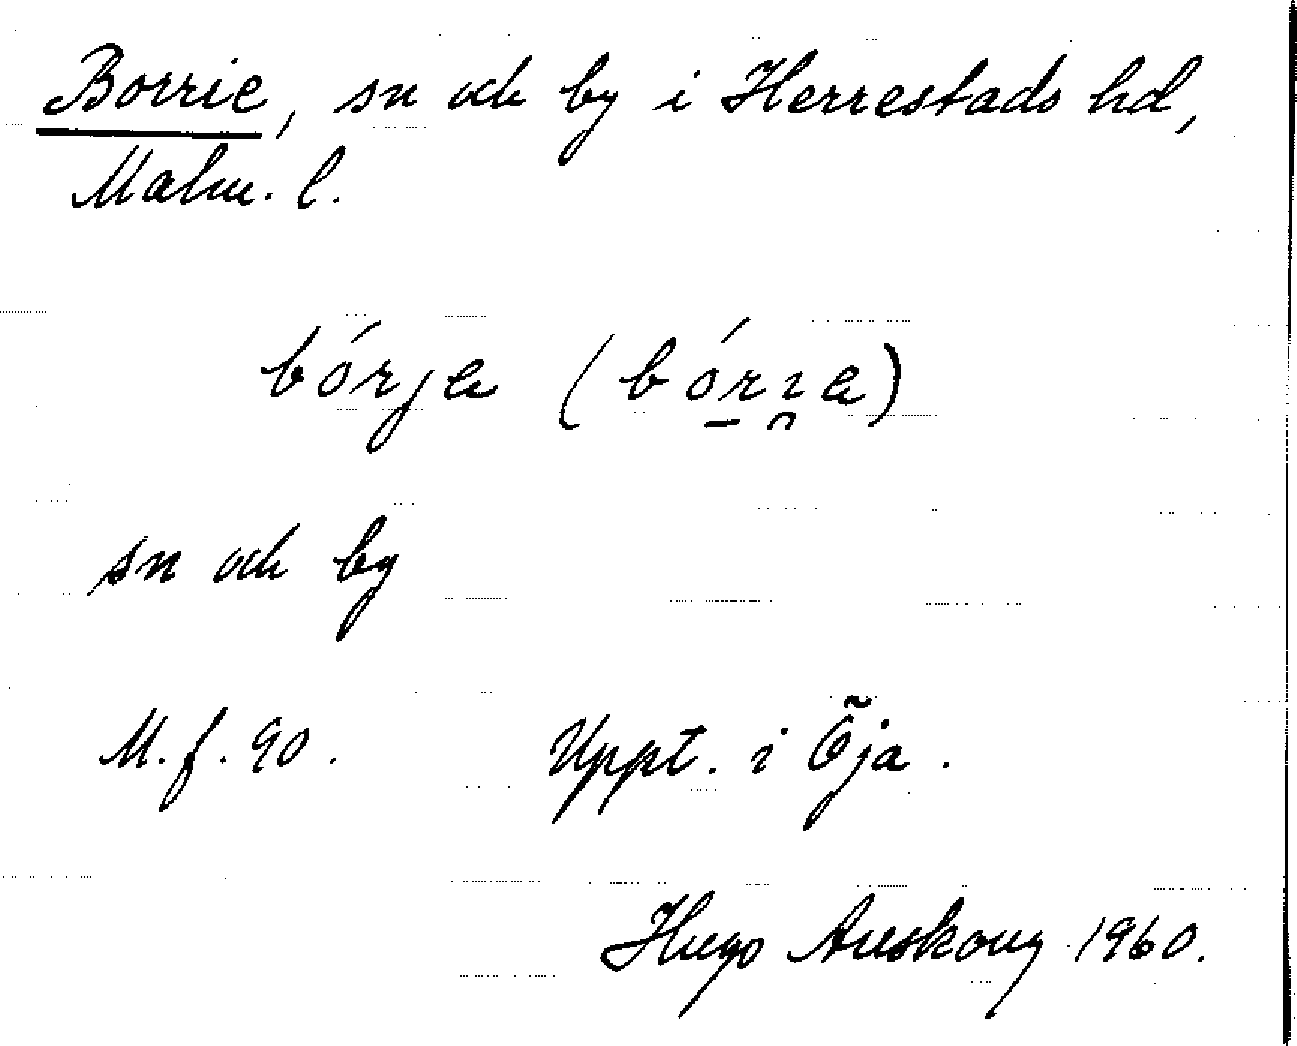 Borrie, sn och by i Herrestads hd,
Malm. l.
bórja (bórıa)
sn och by
M. f. 90. Uppt. i Öja.
Hugo Areskoug 1960.